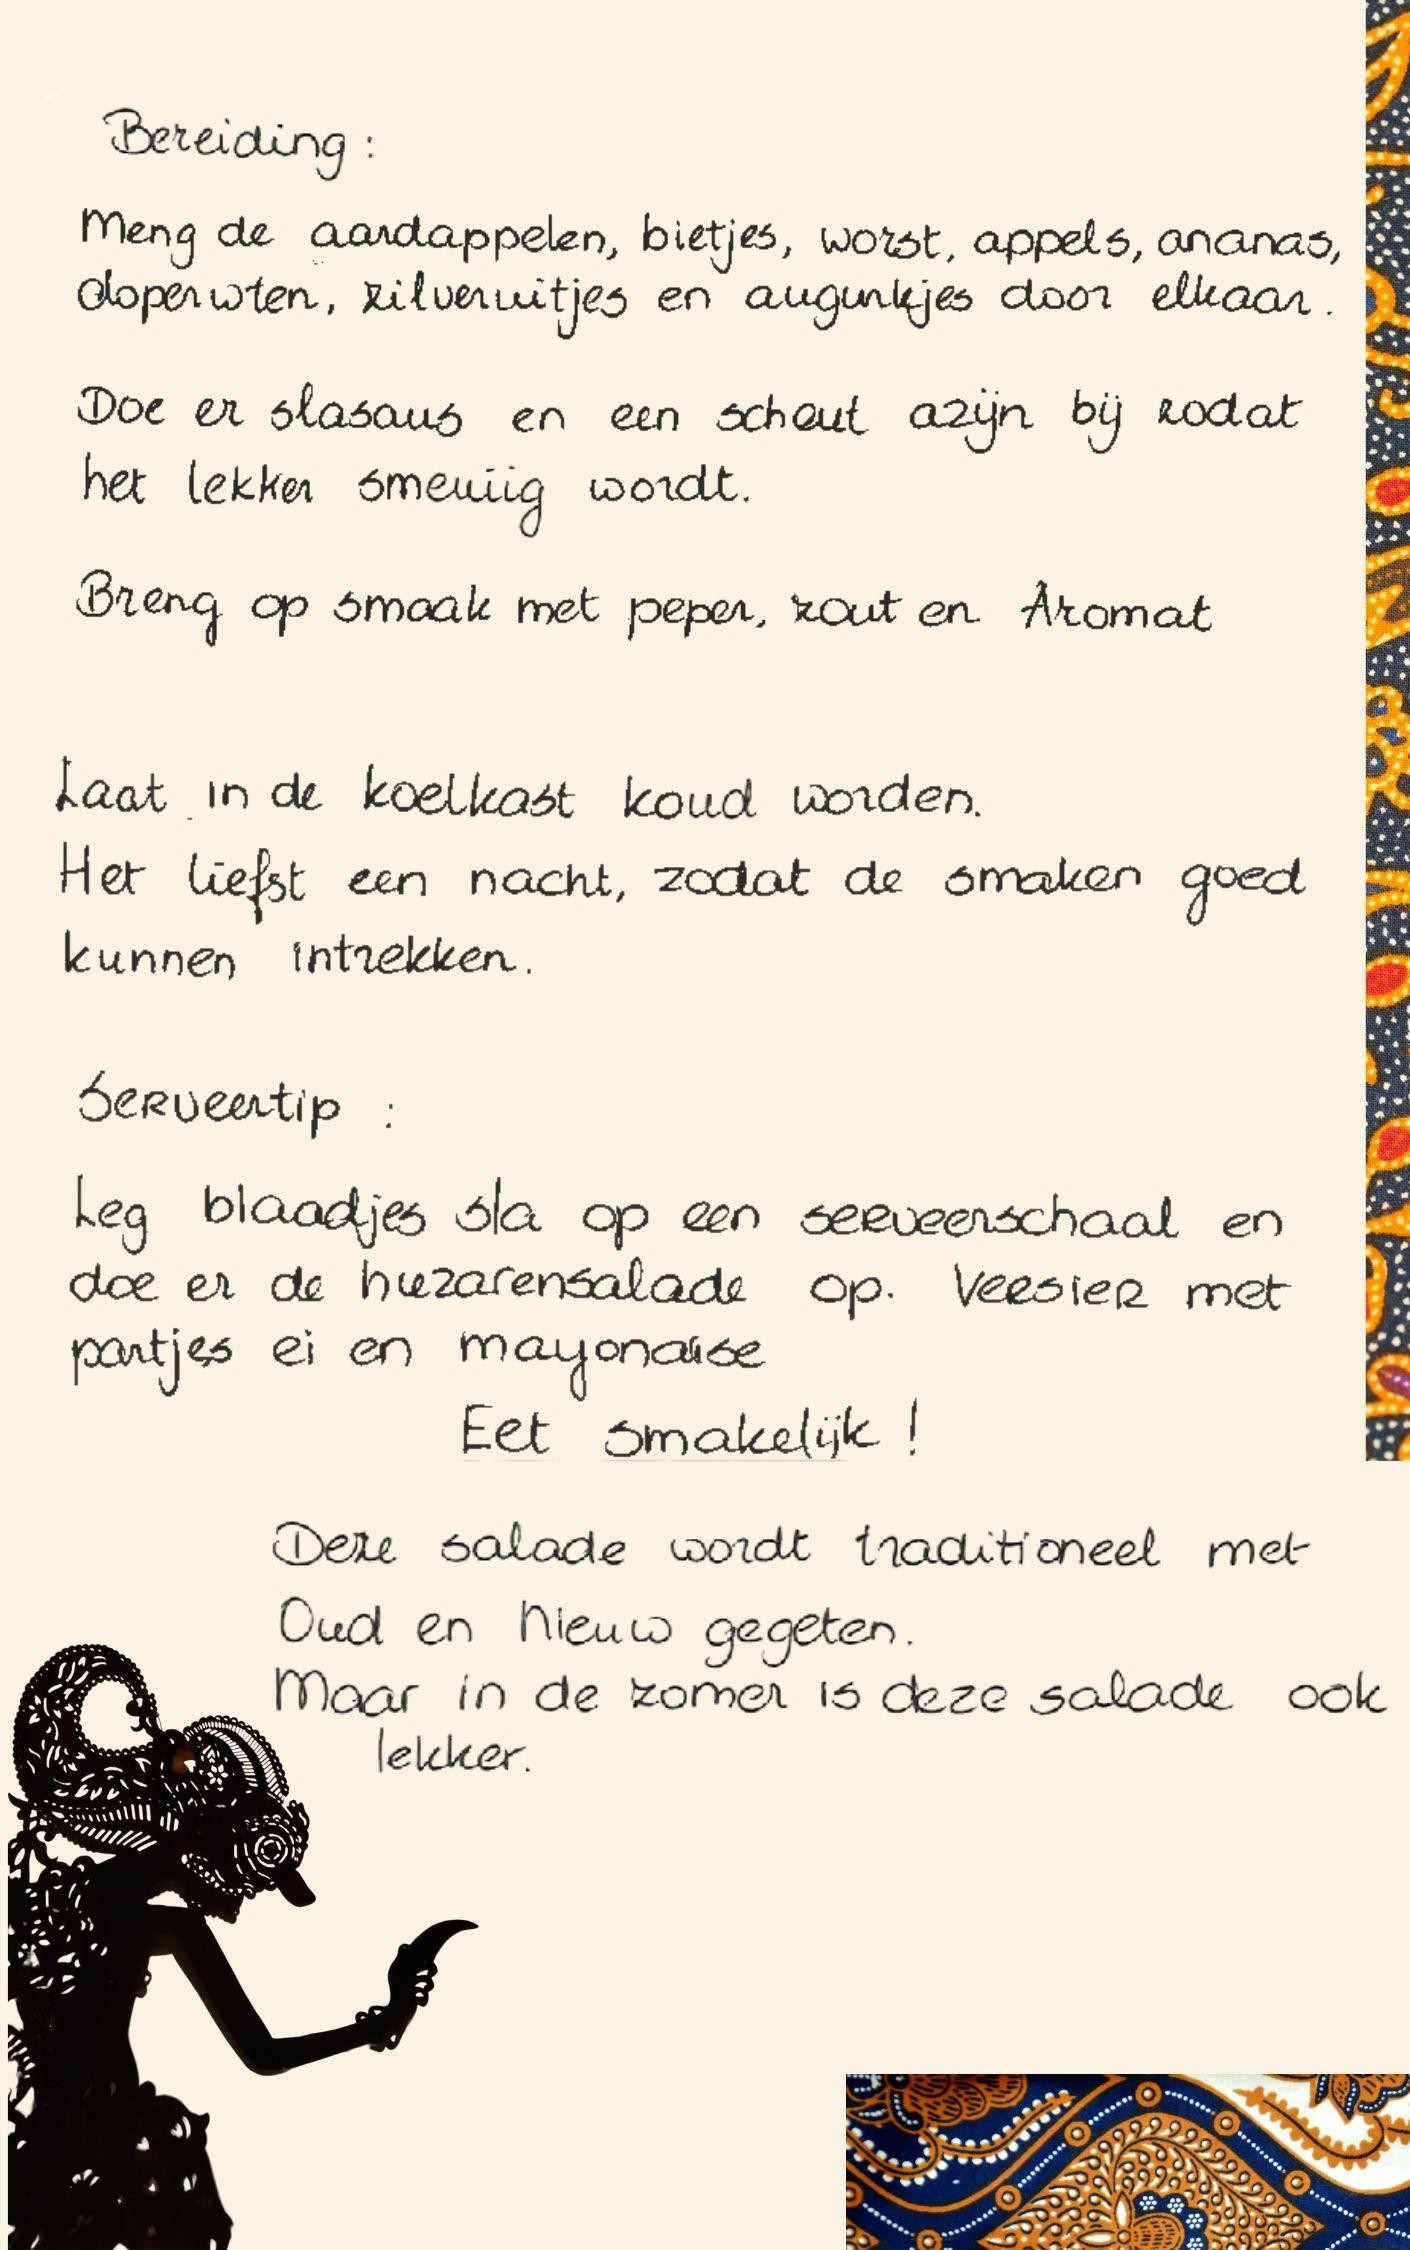 Bereiding:
Meng de aardappelen, bietjes, worst, appels, ananas,
doperwten, zilveruitjes en augurkjes door elkaar.
Doe er slasaus en een scheut azijn bij zodat
het lekker smeuiig wordt.
Breng op smaak met peper, zout en Aromat
Laat in de koelkast koud worden.
Het liefst een nacht, zodat de smaken goed
kunnen intrekken.
Serveertip :
Leg blaadjes sla op een serveerschaal en
doe er de huzarensalade op. Versier met
partjes ei en mayonaise
Eet smakelijk !
Deze salade wordt traditioneel met
Oud en Nieuw gegeten.
Maar in de zomer is deze salade ook
lekker.